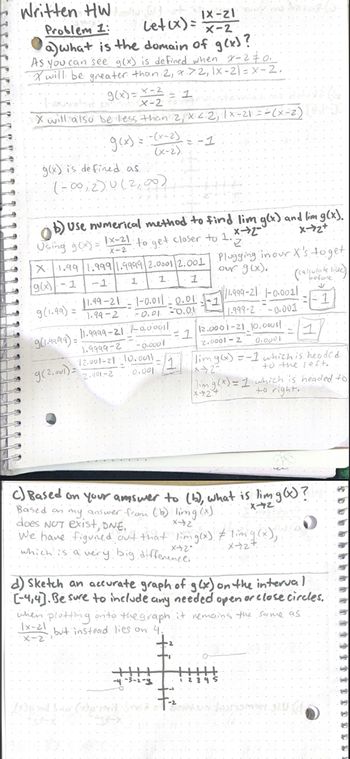 Written HW
Problem 1: Let (x) = |x-2| / x-2
a) what is the domain of g(x)?
As you can see g(x) is defined when x-2≠0.
x will be greater than 2, x>2, |x-2| = x-2.
g(x) = x-2 / x-2 = 1
x will also be less than 2, x<2, |x-2| = -(x-2)
g(x) = -(x-2) / (x-2) = -1
g(x) is defined as
(-∞,2) U (2,∞)
b) Use numerical method to find lim g(x) and lim g(x).
x→2⁻ x→2⁺
Using g(x) = |x-2| / x-2 to get closer to
X 1.99 1.999 1.9999 2.0001 2.001
g(x) -1 -1 1 1 1
Plugging in our X's to get
our g(x). (calculate like before)
g(1.99) = |1.99-2| / 1.99-2 = |-0.01| / -0.01 = 0.01 / -0.01 = -1
|1.999-2| / 1.999-2 = |-0.001| / -0.001 = -1
g(1.9999) = |1.9999-2| / 1.9999-2 = |-0.0001| / -0.0001 = 1
|2.0001-2| / 2.0001-2 = |0.0001| / 0.0001 = 1
g(2.001) = |2.001-2| / 2.001-2 = |0.001| / 0.001 = 1
lim g(x) = -1 which is headed
x→2⁻ to the left.
lim g(x) = 1 which is headed to
x→2⁺ to right.
c) Based on your amswer to (b), what is lim g(x)?
x→2
Based on my answer from (b) lim g(x)
does NOT exist, DNE. x→2
We have figured out that lim g(x) ≠ lim g(x),
x→2⁻ x→2⁺
which is a very big difference.
d) Sketch an accurate graph of g(x) on the interval
[-4,4]. Be sure to include any needed open or close circles.
when plotting onto the graph it remains the same as
|x-2| / x-2, but instead lies on 4.
2
1
-4 -3 -2 -1 1 2 3 4 5
-1
-2